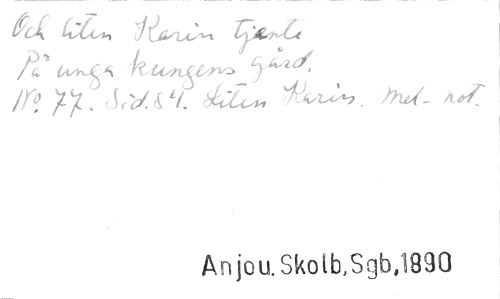 Och liten Karin tjente
På unga kungens gård.
No. 77. Sid. 84. Liten Karin. Mel-not.
Anjou. Skolb, Sgb, 1890